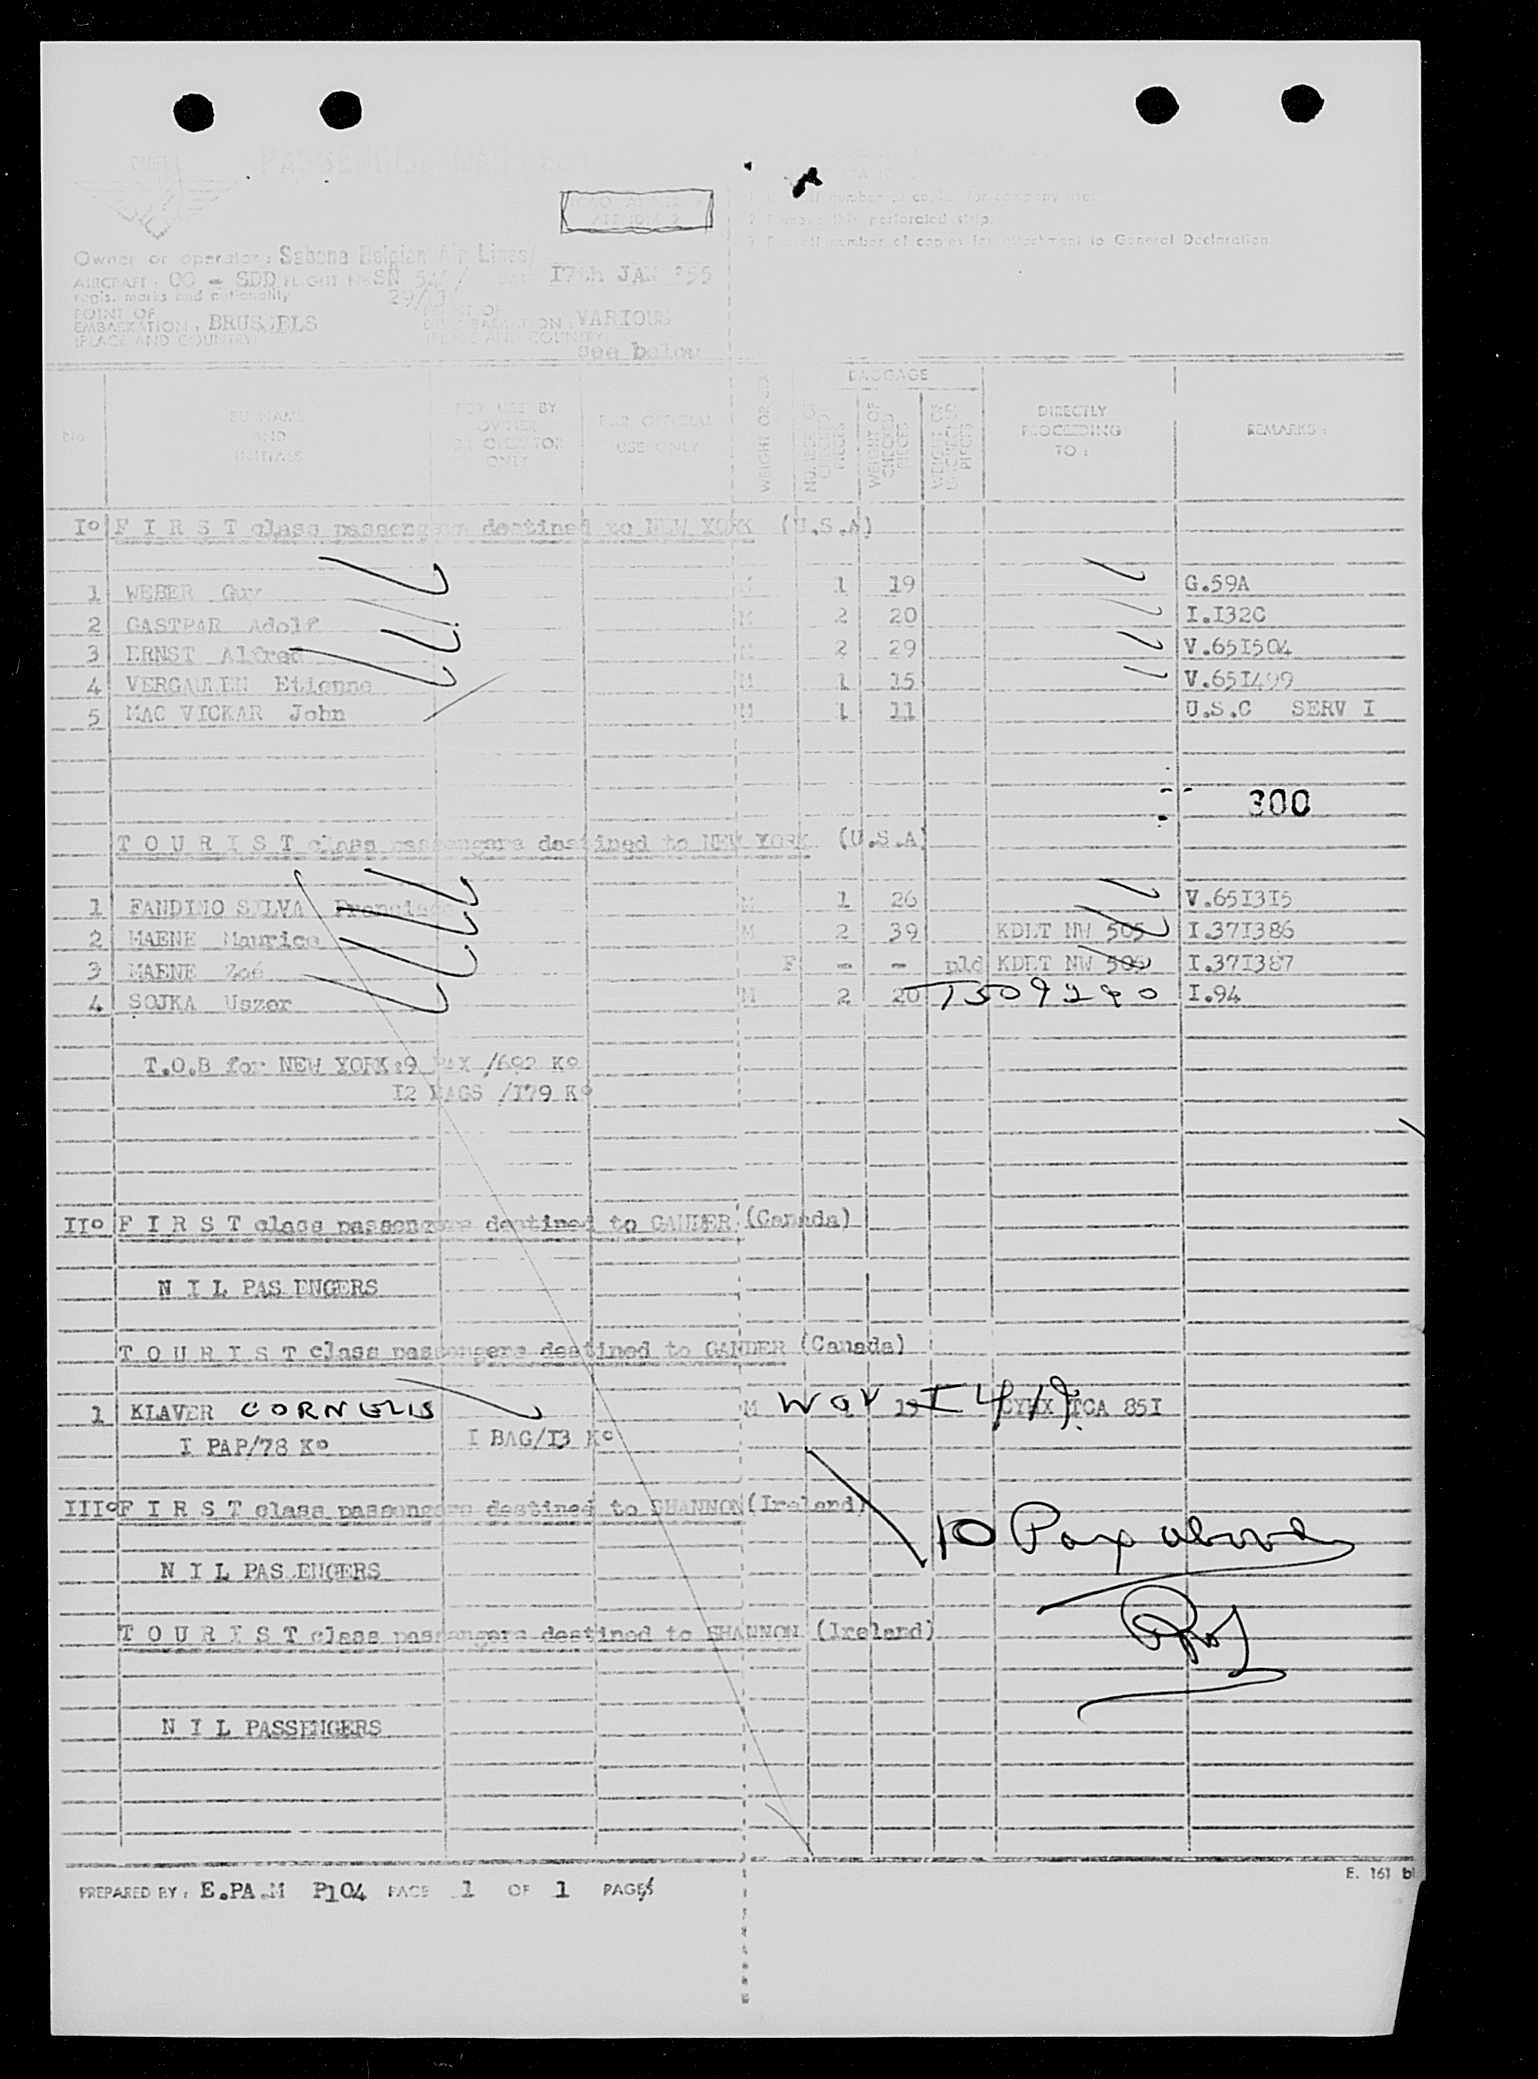 PASSENGER MANIFEST
number of copies for company use.
2. Remove this perforated strip.
number of copies for attachment to General Declaration.
Owner or operator: Sabena Belgian Air Lines/
AIRCRAFT: OO - SDD FLIGHT No SN 17th JAN 55
regis. marks and nationality
POINT OF
EMBARKATION: BRUSSELS VARIOUS
(PLACE AND COUNTRY) (PLACE AND COUNTRY)
see below
No SURNAME AND INITIALS FOR USE BY OWNER OR OPERATOR ONLY FOR OFFICIAL USE ONLY WEIGHT OR SEX BAGGAGE NUMBER OF CHECKED PIECES WEIGHT OF CHECKED PIECES WEIGHT OF UNCHECKED PIECES DIRECTLY PROCEEDING TO: REMARKS:
I° F I R S T class passengers destined to NEW YORK (U.S.A)
1 WEBER Guy M 1 19 G.59A
2 GASTPAR Adolf M 2 20 I.I32C
3 ERNST Alfred M 2 29 V.65I504
4 VERGAUWEN Etienne M 1 15 V.65I499
5 MAC VICKAR John M 1 11 U.S.C SERV I
300
T O U R I S T class passengers destined to NEW YORK (U.S.A)
1 FANDINO SILVA Francisco M 1 26 V.65I3I5
2 MAENE Maurice M 2 39 KDET NW 505 I.37I386
3 MAENE Zoé F - - pld KDET NW 505 I.37I387
4 SOJKA Uszer M 2 20 T509290 I.94
T.O.B for NEW YORK:9 PAX /692 K°
I2 BAGS /I79 K°
II° F I R S T class passengers destined to GANDER (Canada)
N I L PASSENGERS
T O U R I S T class passengers destined to GANDER (Canada)
1 KLAVER CORNELIS M 13 CYHX TCA 85I
I PAP/78 K° I BAG/I3 K°
III° F I R S T class passengers destined to SHANNON (Ireland)
10 Pax above
N I L PASSENGERS
T O U R I S T class passengers destined to SHANNON (Ireland)
N I L PASSENGERS
E. 161 b
PREPARED BY: E.PA.M P104 PAGE 1 OF 1 PAGES